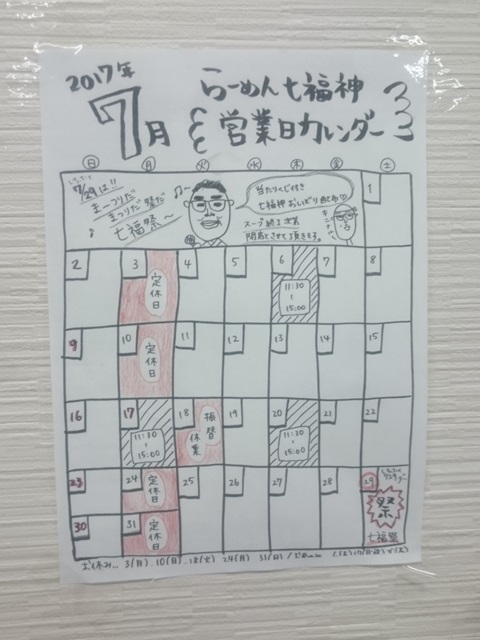 2017年
7月
らーめん七福神
営業日カレンダー
日 月 火 水 木 金 土
7/29は!!
まーつりだ
まつりだ 祭だ
七福祭～
当たりくじ付き
七福神 おしぼり
スープ終了次第
閉店とさせて頂きます。
1
2 3 4 5 6 7 8
定休日
11:30
～
15:00
9 10 11 12 13 14 15
定休日
16 17 18 19 20 21 22
11:30
～
15:00
振替
休業
11:30
～
15:00
23 24 25 26 27 28 29
定休日
祭
七福祭
30 31
定休日
お休み… 3(月) 10(月) 18(火) 24(月) 31(月)